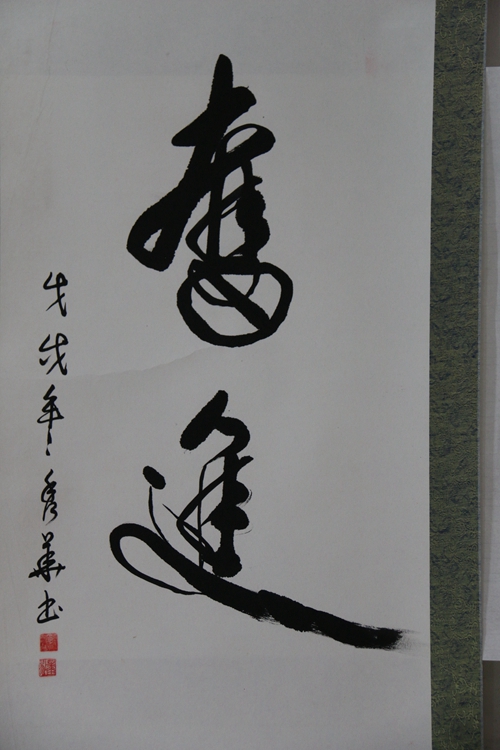 奮進
戊戌年秀華书